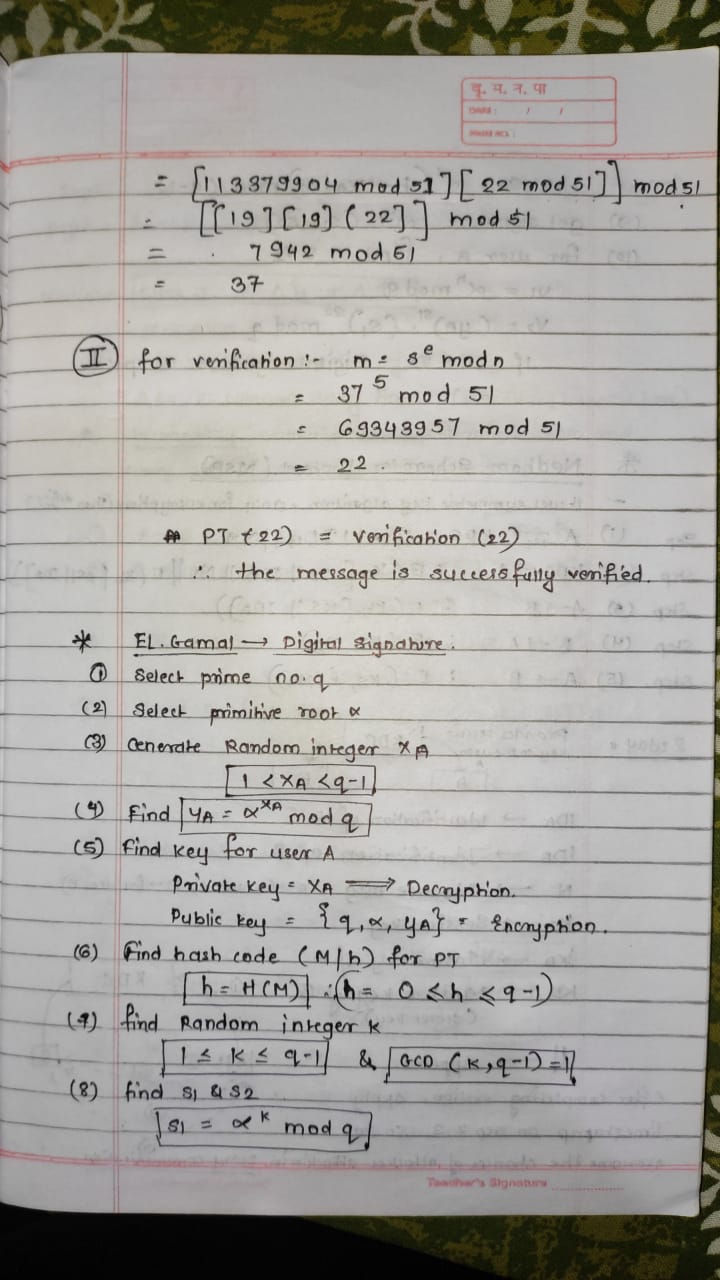 वृ. म. न. पा
DATE: / /
= [113379904 mod 51][22 mod 51]] mod 51
= [[19][19](22]] mod 51
= 7942 mod 51
= 37
(II) for verification :- m = s^e mod n
= 37^5 mod 51
= 69343957 mod 51
= 22.
PT (22) = verification (22)
∴ the message is successfully verified.
* EL. Gamal → Digital Signature.
(1) Select prime no. q
(2) Select primitive root α
(3) Generate Random integer XA
1 < XA < q-1
(4) Find YA = α^XA mod q
(5) Find key for user A
Private key = XA ⟹ Decryption.
Public key = {q, α, YA} = Encryption.
(6) Find hash code (M/h) for PT
h = H(M) ∴ (h = 0 ≤ h ≤ q-1)
(7) find Random integer k
1 ≤ K ≤ q-1 & GCD (K, q-1) = 1
(8) find S1 & S2
S1 = α^K mod q
Teacher's Signature ....................